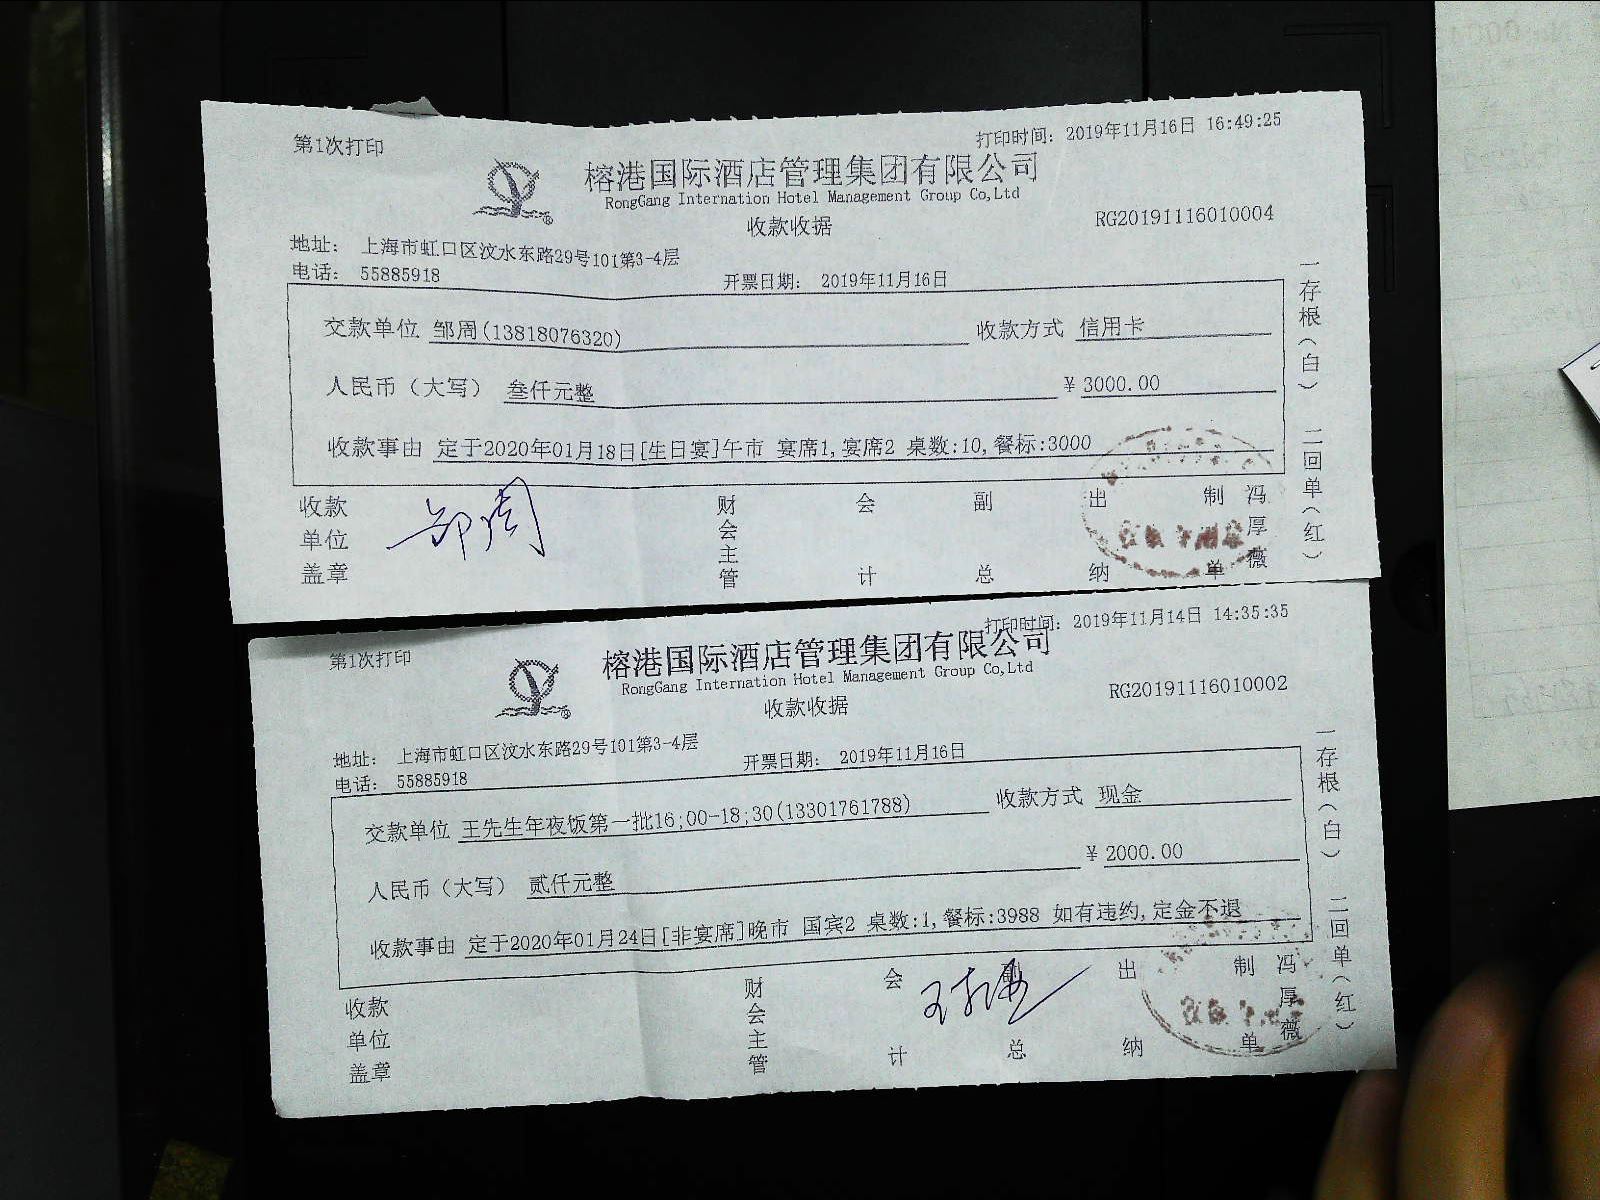 第1次打印
打印时间: 2019年11月16日 16:49:25
榕港国际酒店管理集团有限公司
RongGang Internation Hotel Management Group Co,Ltd
收款收据
RG20191116010004
地址: 上海市虹口区汶水东路29号101第3-4层
电话: 55885918
开票日期: 2019年11月16日
交款单位 邹周(13818076320) 收款方式 信用卡
人民币(大写) 叁仟元整 ¥ 3000.00
收款事由 定于2020年01月18日[生日宴]午市 宴席1,宴席2 桌数:10,餐标:3000
收款单位盖章 邹周 财会主管 会计 副总 出纳 制单 冯厚薇
一存根(白) 二回单(红)
第1次打印
打印时间: 2019年11月14日 14:35:35
榕港国际酒店管理集团有限公司
RongGang Internation Hotel Management Group Co,Ltd
收款收据
RG20191116010002
地址: 上海市虹口区汶水东路29号101第3-4层
电话: 55885918
开票日期: 2019年11月16日
交款单位 王先生年夜饭第一批16;00-18;30(13301761788) 收款方式 现金
人民币(大写) 贰仟元整 ¥ 2000.00
收款事由 定于2020年01月24日[非宴席]晚市 国宾2 桌数:1,餐标:3988 如有违约,定金不退
收款单位盖章 财会主管 会计 副总 出纳 制单 冯厚薇
一存根(白) 二回单(红)